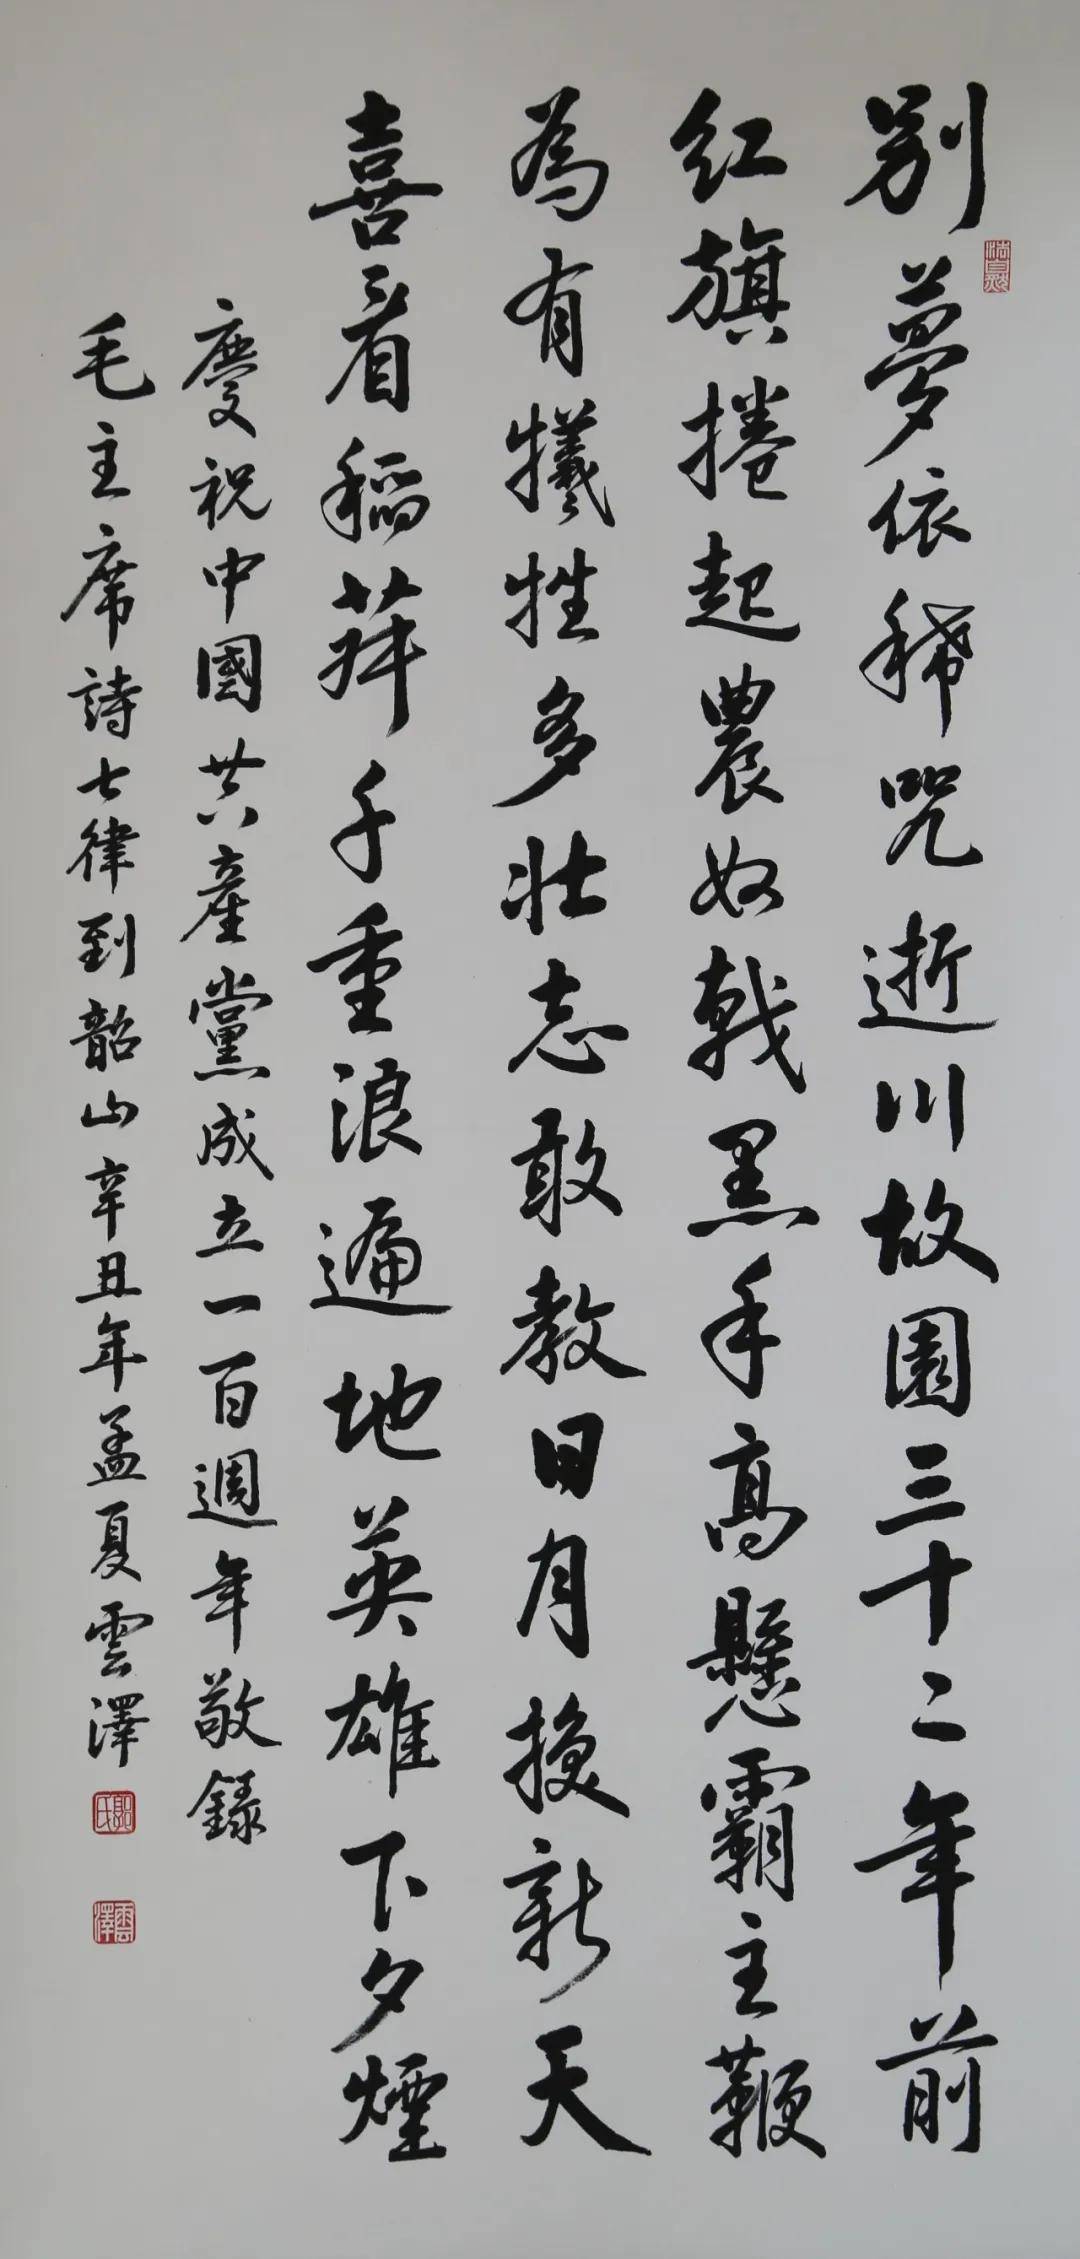 别夢依稀咒逝川故園三十二年前
红旗捲起農奴戟黑手高懸霸主鞭
為有犧牲多壯志敢教日月換新天
喜看稻菽千重浪遍地英雄下夕煙
慶祝中國共產黨成立一百週年敬錄
毛主席詩七律到韶山辛丑年孟夏雲澤
郭氏
雲澤